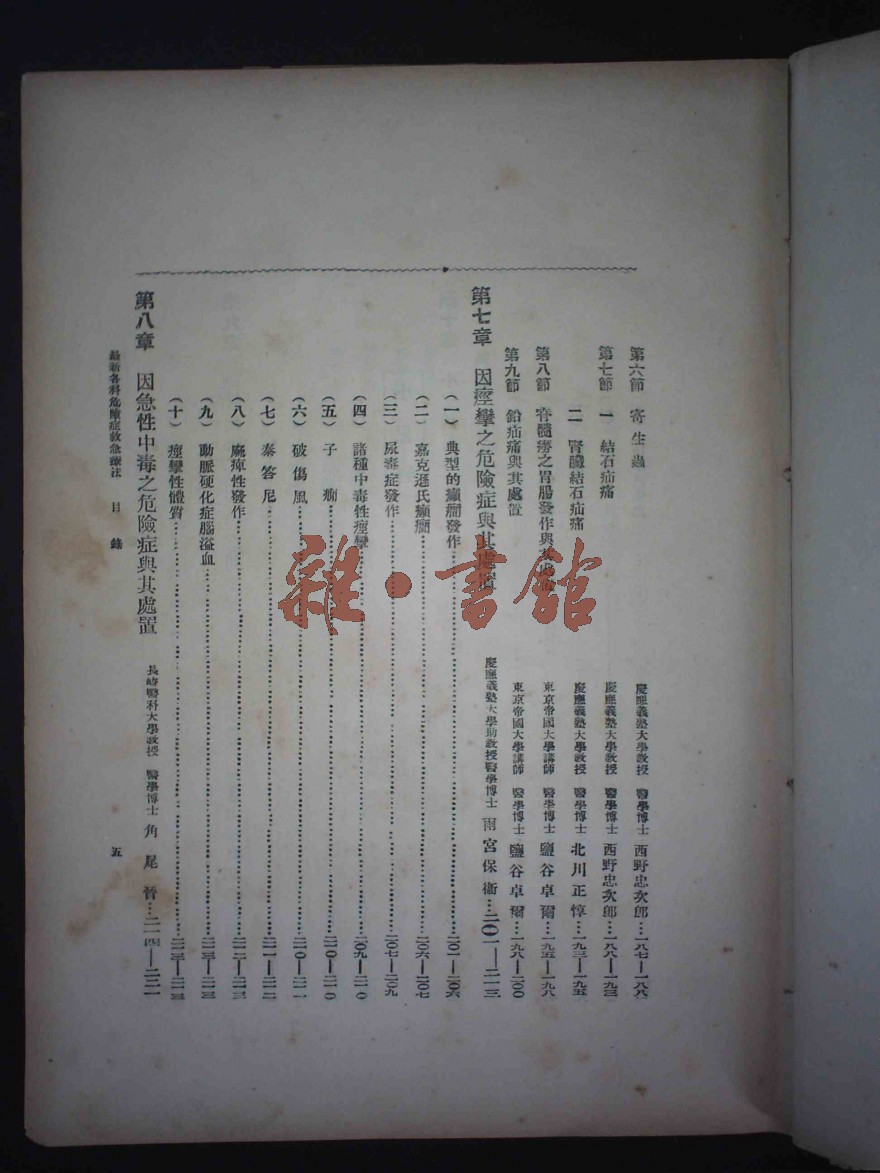 第六節 寄生蟲 慶應義塾大學教授 醫學博士 西野忠次郎…一八七—一八八
第七節 一 結石疝痛 慶應義塾大學教授 醫學博士 西野忠次郎…一八八—一九三
二 腎臟結石疝痛 慶應義塾大學教授 醫學博士 北川正惇…一九三—一九五
第八節 脊髓癆之胃腸發作與其處置 東京帝國大學講師 醫學博士 鹽谷卓爾…一九五—一九八
第九節 鉛疝痛與其處置 東京帝國大學講師 醫學博士 鹽谷卓爾…一九八—二〇〇
第七章 因痙攣之危險症與其處置 慶應義塾大學助教授醫學博士 雨宮保衞…二〇一—二一三
(一) 典型的癲癇發作…二〇一—二〇六
(二) 嘉克遜氏癲癇…二〇六—二〇七
(三) 尿毒症發作…二〇七—二〇九
(四) 諸種中毒性痙攣…二〇九—二一〇
(五) 子癇…二一〇—二一〇
(六) 破傷風…二一〇—二一一
(七) 泰答尼…二一一—二一二
(八) 麻痺性發作…二一二—二一三
(九) 動脈硬化症腦溢血…二一三—二一三
(十) 痙攣性體質…二一三—二一三
第八章 因急性中毒之危險症與其處置 長崎醫科大學教授 醫學博士 角尾晉…二一四—二三一
最新各科危險症救急療法 目錄 五
雜·書館